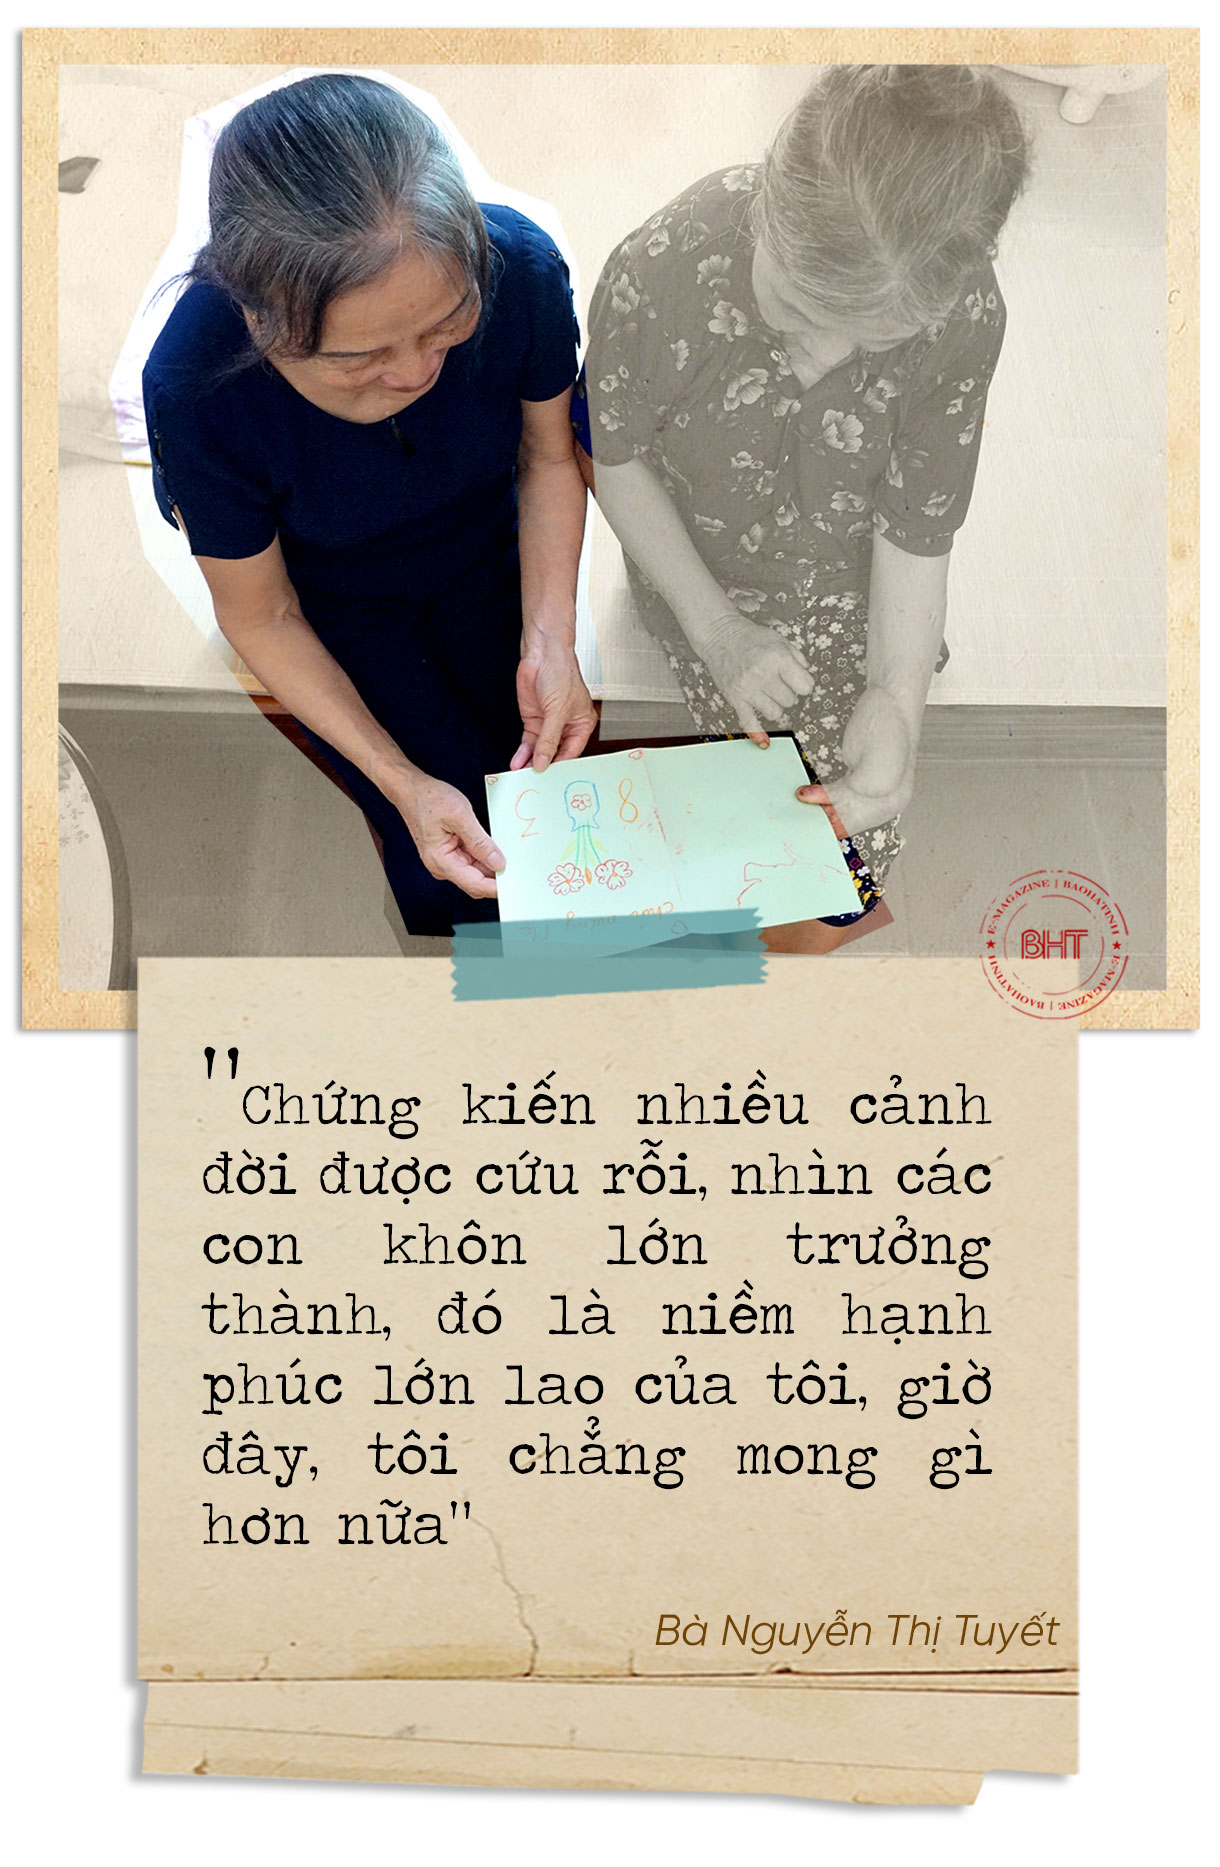 3 8
chúc mừng
E-MAGAZINE | BAOHATINH
BHT
E-MAGAZINE | BAOHATINH
"Chứng kiến nhiều cảnh
đời được cứu rỗi, nhìn các
con khôn lớn trưởng
thành, đó là niềm hạnh
phúc lớn lao của tôi, giờ
đây, tôi chẳng mong gì
hơn nữa"
Bà Nguyễn Thị Tuyết